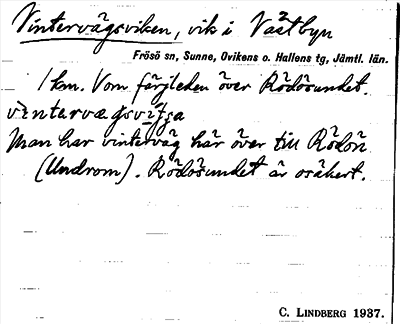 Vintervägsviken, vik i Västbyn
Frösö sn, Sunne, Ovikens o. Hallens tg, Jämtl. län.
1 km. Vom färjleden över Rödösundet.
Man har vinterväg här över till Rödön
(Undrom). Rödösundet är osäkert.
C. LINDBERG 1937.